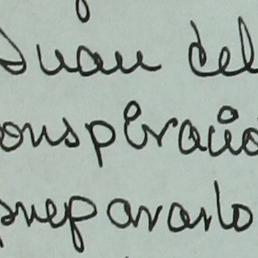 Juan del
onspiració
prepararlo